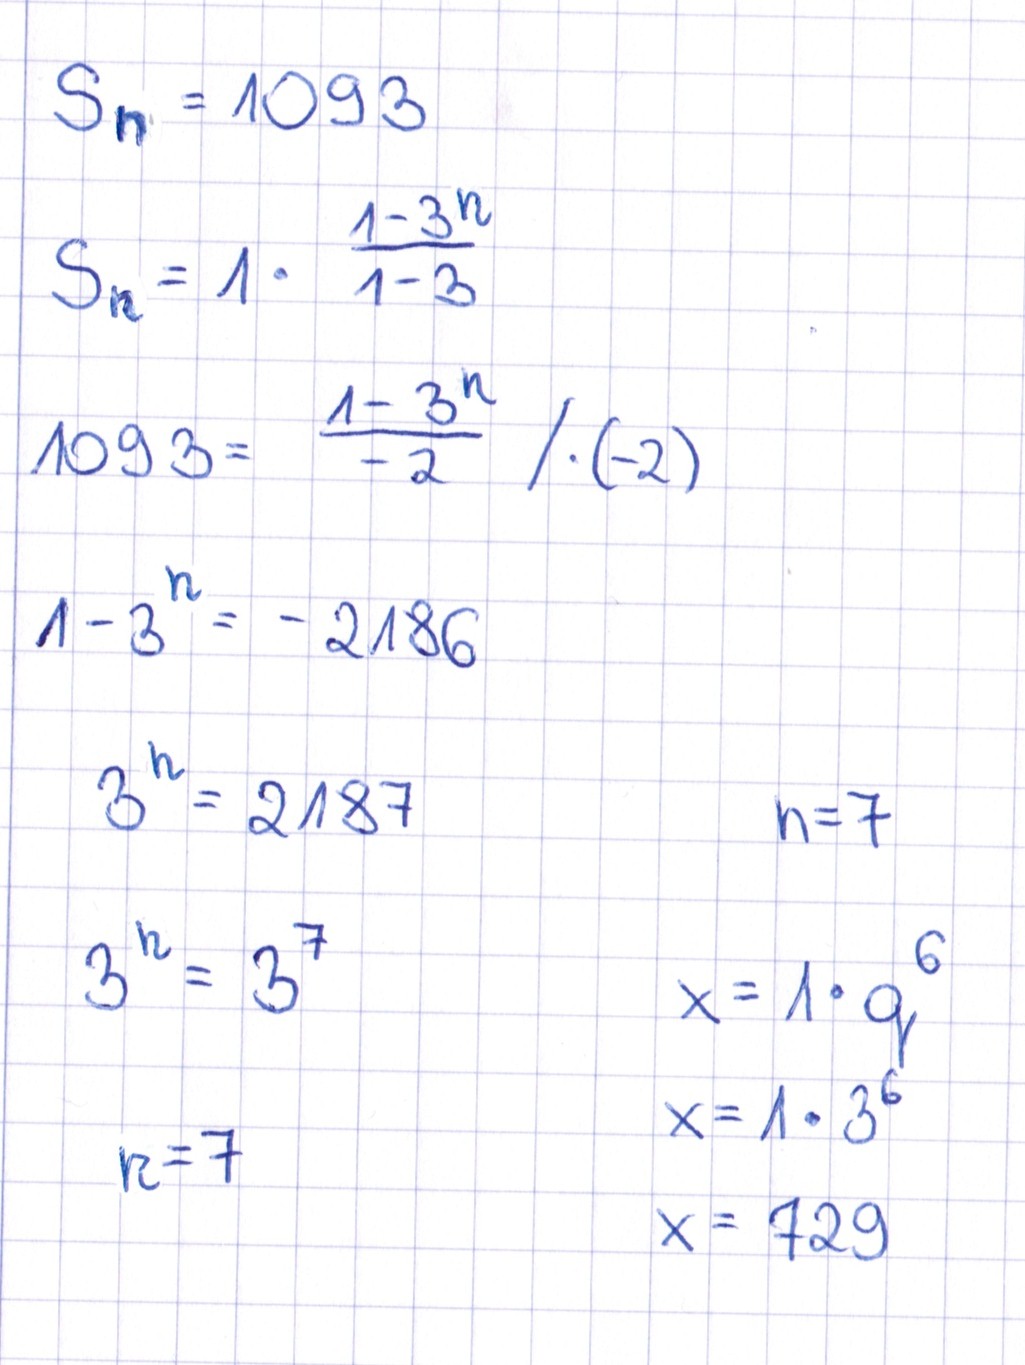 Sₙ = 1093
Sₙ = 1 · (1-3ⁿ)/(1-3)
1093 = (1-3ⁿ)/(-2) / · (-2)
1-3ⁿ = -2186
3ⁿ = 2187
3ⁿ = 3⁷
n=7
n=7
x = 1 · q⁶
x = 1 · 3⁶
x = 729